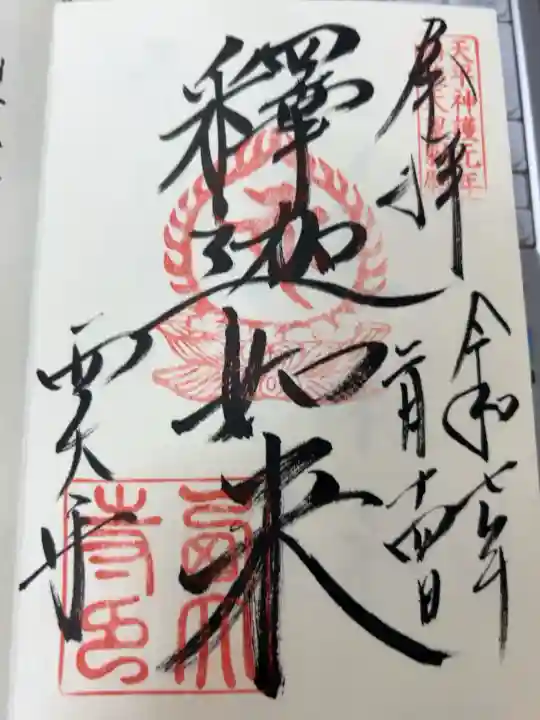 天平神護元年
奉拝
令和七年
二月十四日
釋迦如来
西大寺